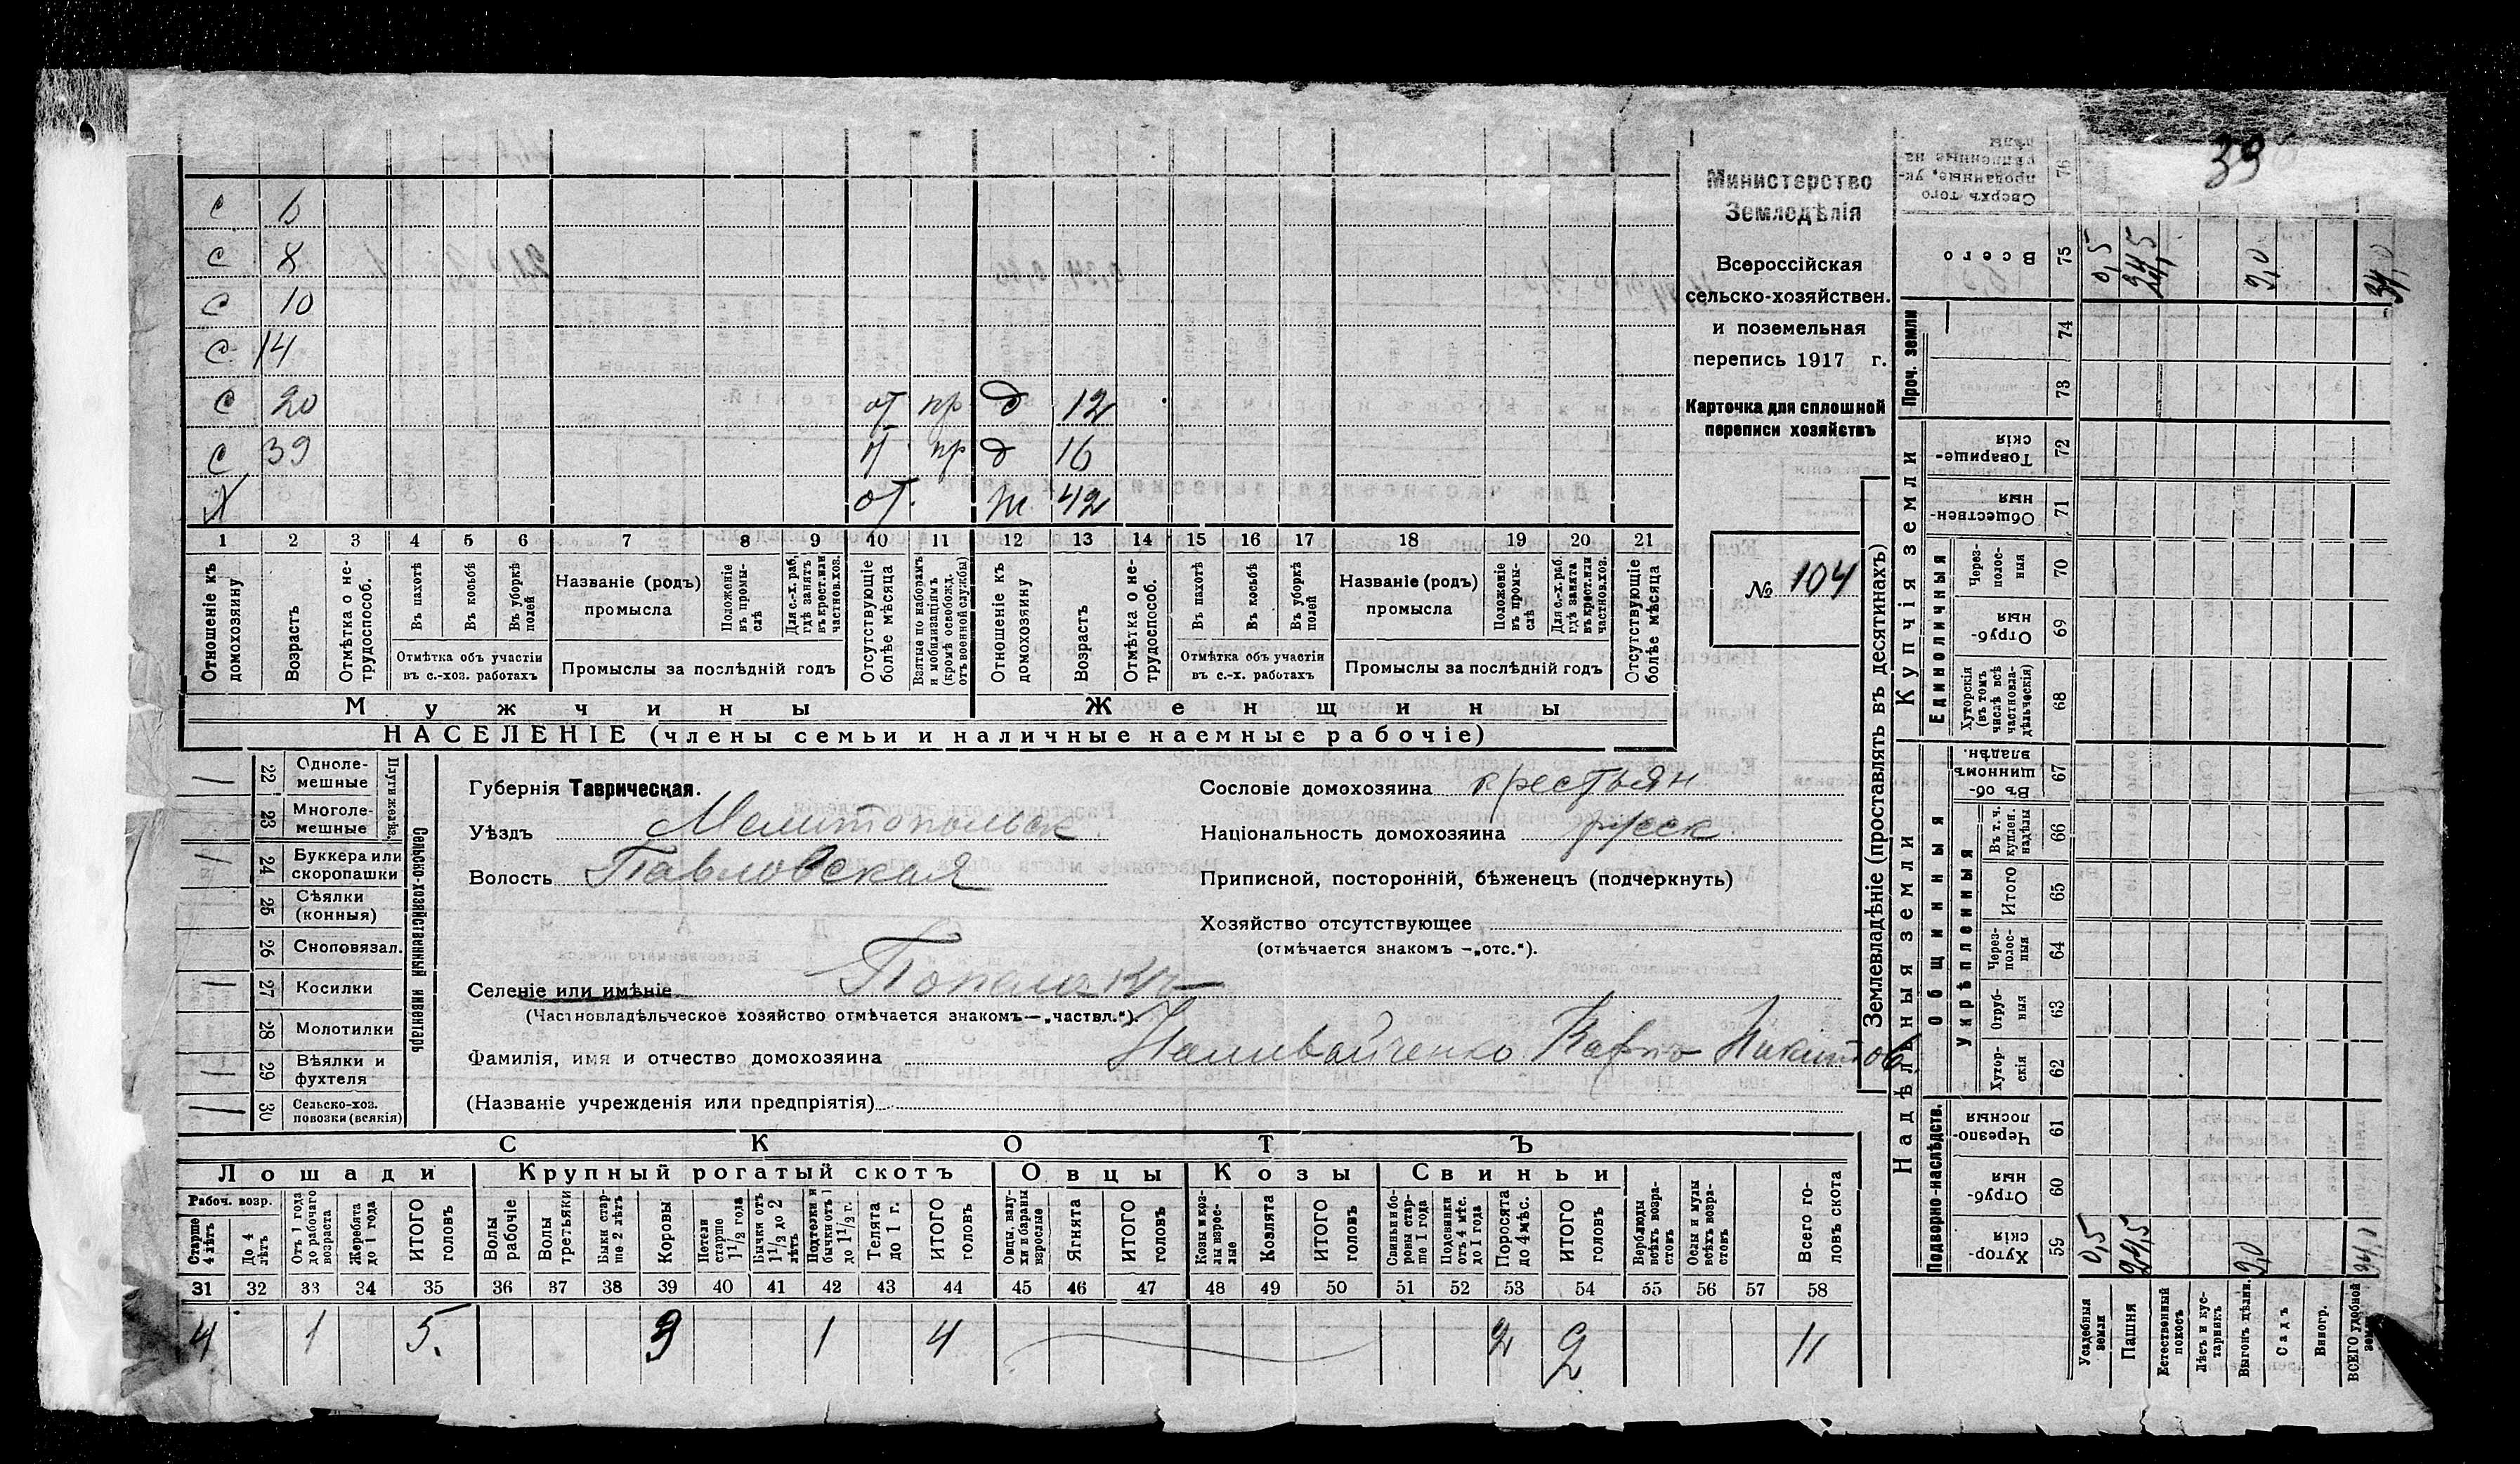 39
Министерство
Земледѣлія
Всероссійская
сельско-хозяйствен.
и поземельная
перепись 1917 г.
Карточка для сплошной
переписи хозяйствъ
№ 104
с 6
с 8
с 10
с 14
с 20 от пр д 12
с 39 от пр д 16
х от. ж. 42
1 2 3 4 5 6 7 8 9 10 11 12 13 14 15 16 17 18 19 20 21
Отношеніе къ домохозяину
Возрастъ
Отмѣтка о нетрудоспособ.
Въ пахотѣ
Въ косьбѣ
Въ уборкѣ полей
Отмѣтка объ участіи въ с.-хоз. работахъ
Названіе (родъ) промысла
Положеніе въ промыслѣ
Для с.-х. раб. гдѣ занятъ въ крест. или частнов. хоз.
Промыслы за послѣдній годъ
Отсутствующіе болѣе мѣсяца
Взятые по наборамъ и мобилизаціямъ (кромѣ освобожд. отъ военной службы)
Отношеніе къ домохозяину
Возрастъ
Отмѣтка о нетрудоспособ.
Въ пахотѣ
Въ косьбѣ
Въ уборкѣ полей
Отмѣтка объ участіи въ с.-х. работахъ
Названіе (родъ) промысла
Положеніе въ промыслѣ
Для с.-х. раб. гдѣ занята въ крест. или частнов. хоз.
Промыслы за послѣдній годъ
Отсутствующіе болѣе мѣсяца
Мужчины Женщины
НАСЕЛЕНІЕ (члены семьи и наличные наемные рабочіе)
Сельско-хозяйственный инвентарь
Плуги желѣз.
22 Однолемешные
23 Многолемешные
24 Буккера или скоропашки
25 Сѣялки (конныя)
26 Сноповязал.
27 Косилки
28 Молотилки
29 Вѣялки и фухтеля
30 Сельско-хоз. повозки (всякія)
Губернія Таврическая.
Уѣздъ Мелитопольск
Волость Павловская
Селеніе или имѣніе
(Частновладѣльческое хозяйство отмѣчается знакомъ—„частвл.“).
Фамилія, имя и отчество домохозяина Наливайченко Карпъ Никитов
(Названіе учрежденія или предпріятія)
Сословіе домохозяина крестьян
Національность домохозяина русск
Приписной, посторонній, бѣженецъ (подчеркнуть)
Хозяйство отсутствующее
(отмѣчается знакомъ —„отс.“).
СКОТЪ
Лошади Крупный рогатый скотъ Овцы Козы Свиньи
Рабоч. возр.
Старше 4 лѣтъ
До 4 лѣтъ
Отъ 1 года до рабочаго возраста
Жеребята до 1 года
ИТОГО головъ
Волы рабочіе
Волы третьяки
Быки старше 2 лѣтъ
Коровы
Нетели старше 1 1/2 года
Бычки отъ 1 1/2 до 2 лѣтъ
Подтелки и бычки отъ 1 до 1 1/2 г.
Телята до 1 г.
ИТОГО головъ
Овцы, валухи и бараны взрослые
Ягнята
ИТОГО головъ
Козы и козлы взрослые
Козлята
ИТОГО головъ
Свиньи и боровы старше 1 года
Подсвинки отъ 4 мѣс. до 1 года
Поросята до 4 мѣс.
ИТОГО головъ
Верблюды всѣхъ возрастовъ
Ослы и мулы всѣхъ возрастовъ
Всего головъ скота
31 32 33 34 35 36 37 38 39 40 41 42 43 44 45 46 47 48 49 50 51 52 53 54 55 56 57 58
4 1 5. 3 1 4 2 2 11
Землевладѣніе (проставлять въ десятинахъ)
Надѣльныя земли
Купчія земли
Проч. земли
Подворно-наслѣдств.
Общинныя
Укрѣпленныя
Единоличныя
Хуторскія 59
Отрубныя 60
Черезполосныя 61
Хуторскія 62
Отрубныя 63
Черезполосныя 64
Итого 65
Въ т. ч. куплен. надѣлы 66
Въ общинномъ владѣн. 67
Хуторскія (въ томъ числѣ всѣ частновладѣльческія) 68
Отрубныя 69
Черезполосныя 70
Общественныя 71
Товарищескія 72
73
74
Всего 75
Сверхъ того проданные, укрѣпленные надѣлы 76
Усадебныя земли 0,5 0,5
Пашня 24,5 24,5
Естественный покосъ
Лѣсъ и кустарникъ
Выгонъ цѣлин. 2,0 2,0
Садъ
Виногр.
ВСЕГО удобной земли